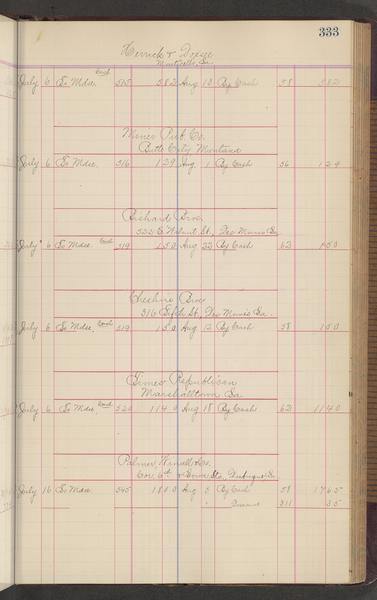 333
Herrick &
Monticello, Ia.
July 6 To Mdse. Cond 515 582 Aug 13 By Cash 58 582
Miner Pub. Co.
Butte City Montana
July 6 To Mdse. 516 129 Aug 1 By Cash 56 129
Richard Bros.
532 E. Walnut St., Des Moines Ia.
July 6 To Mdse. Cond 519 150 Aug 22 By Cash 62 150
Cheshire Bros
316 Fifth St., Des Moines Ia.
July 6 To Mdse. Cond 519 150 Aug 12 By Cash 58 150
Times Republican
Marshalltown Ia
July 6 To Mdse. Cond 520 1140 Aug 18 By Cash 62 1140
Palmer, Winall & Co.
Cor. 6th & Iowa Sts., Dubuque Ia
July 16 To Mdse. 545 1800 Aug 5 By Cash 58 1765
" 311 35